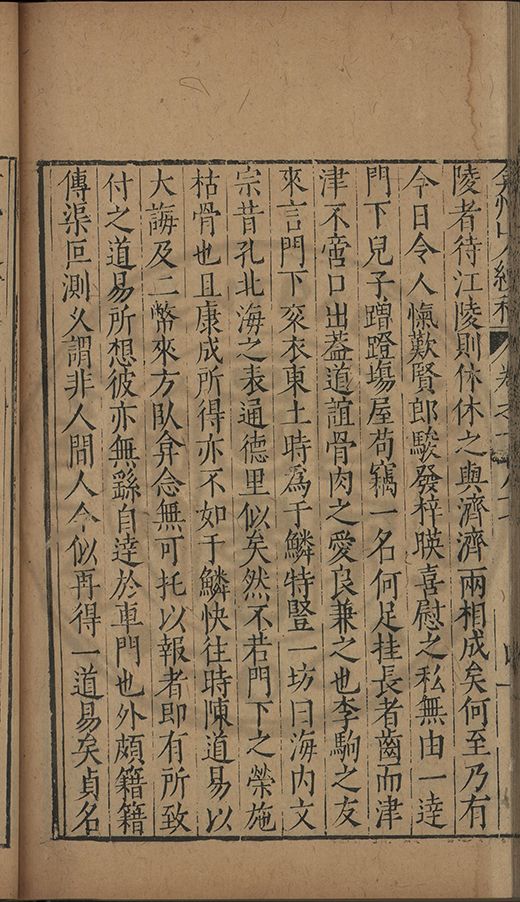 弇州山人續稿 卷之
陵者待江陵則休休之與濟濟兩相成矣何至乃有
今日令人愾歎賢郎駿發梓暎喜慰之私無由一逹
門下兒子蹭蹬塲屋苟竊一名何足挂長者齒而津
津不啻口出葢道誼骨肉之愛良兼之也李駒之友
來言門下衮衣東土時為于鱗特豎一坊曰海内文
宗昔孔北海之表通德里似矣然不若門下之榮施
枯骨也且康成所得亦不如于鱗快往時陳道易以
大誨及二幣來方臥弇念無可托以報者即有所致
付之道易所想彼亦無繇自逹於車門也外頗籍籍
傳渠叵測乆謂非人間人今似再得一道易矣貞名